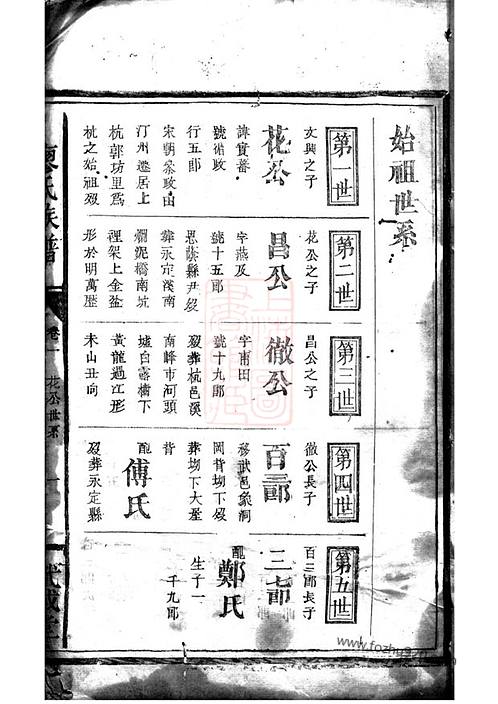 始祖世系
第一世
文興之子
花公
諱實蕃
號備政
行五郎
宋朝叅政由
汀州遷居上
杭郭坊里爲
杭之始祖歿
第二世
花公之子
昌公
字燕及
號十五郎
恩蔭縣尹歿
葬永定溪南
爛泥橋南坑
裡架上金盆
形於明萬歷
第三世
昌公之子
徹公
字甫田
號十九郎
歿葬杭邑溪
南峰市河頭
墟白露樹下
黃龍過江形
未山丑向
第四世
徹公長子
百三郎
移武邑象洞
岡背坳下歿
葬坳下大產
背
配
傅氏
歿葬永定縣
第五世
百三郎長子
三七郎
配
鄭氏
生子一
千九郎
廖氏族譜
卷一
花公世系
一
武威堂
www.fozhu920.com